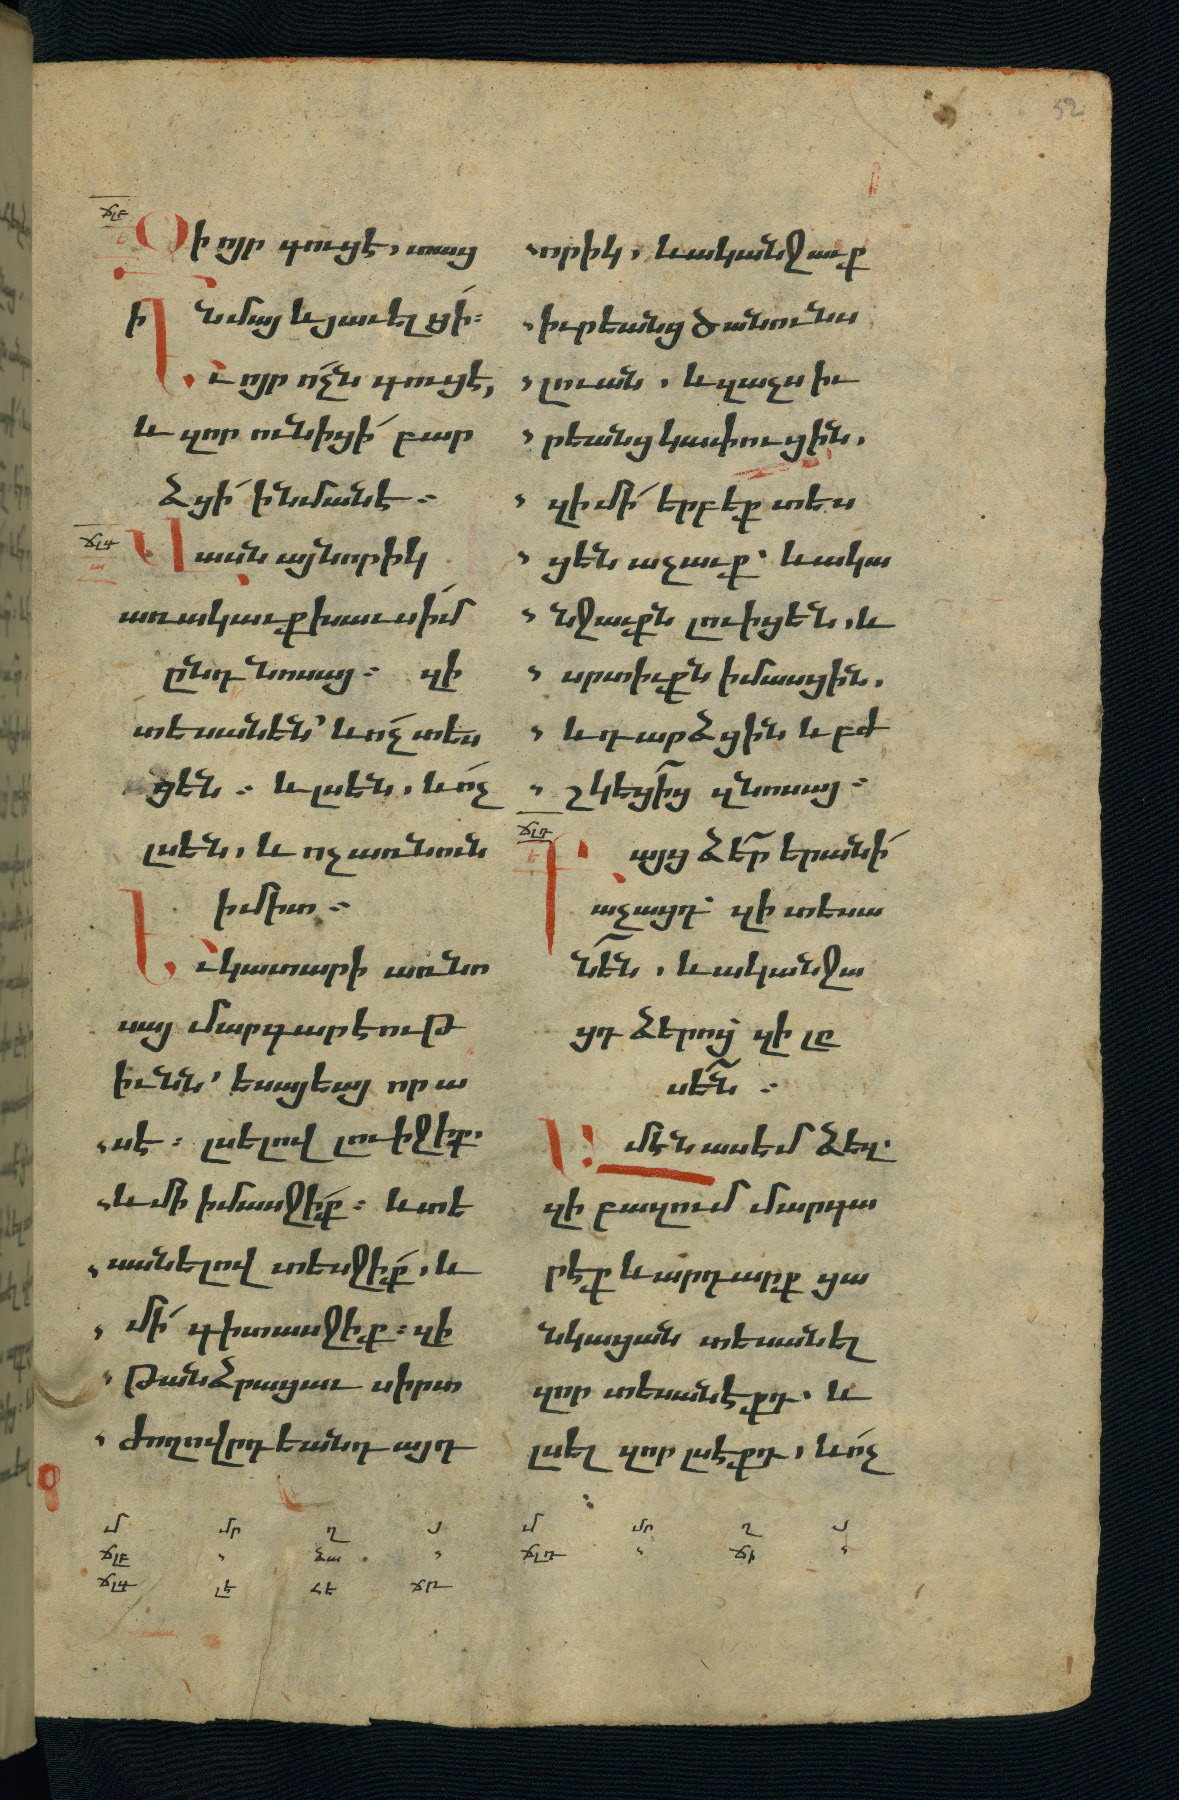 52
ՃԼԲ
Զի ոյր գուցէ, տաց
ի նմայ և յաւել ցի։
Եւ ոյր ոչն գուցէ,
և զոր ունիցի բար
ձցի ի նմանէ։
ՃԼԳ
Վասն այնորիկ
առակաւք խաւսիմ
ընդ նոսայ։ զի
տեսանեն՝ և ոչ տես
ցեն։ և լսեն, և ոչ
լսեն, և ոչ առնուն
ի միտ։
Եւ կատարի առ նո
սայ մարգարէութ
իւնն՝ եսայեայ որ ա
սէ։ լսելով լուիջիք.
և մի իմասջիք։ և տե
սանելով տեսջիք, և
մի գիտասջիք։ զի
թանձրացաւ սիրտ
ժողովրդեանդ այդ
որիկ, և ականջաւք
իւրեանց ծանունս
լուան, և զաչս իւ
րեանց կափուցին,
զի մի երբեք տես
ցեն աչաւք՝ և ակա
նջաւքն լուիցեն, և
սրտիւքն իմասցին,
և դարձցին և բժ
շկեցից զնոսայ։
ՃԼԴ
Բայց ձեր երանի
աչացդ՝ զի տեսա
նեն, և ականջա
ցդ ձերոց զի լը
սեն։
Ամէն ասեմ ձեզ.
զի բազում մարգա
րէք և արդարք ցա
նկացան տեսանել
զոր տեսանէքդ. և
լսել զոր լսէքդ, և ոչ
մ մր ղ յ մ մր ղ յ
ՃԼԲ ՃԼԴ
ՃԼԳ ԼԵ ՀԵ